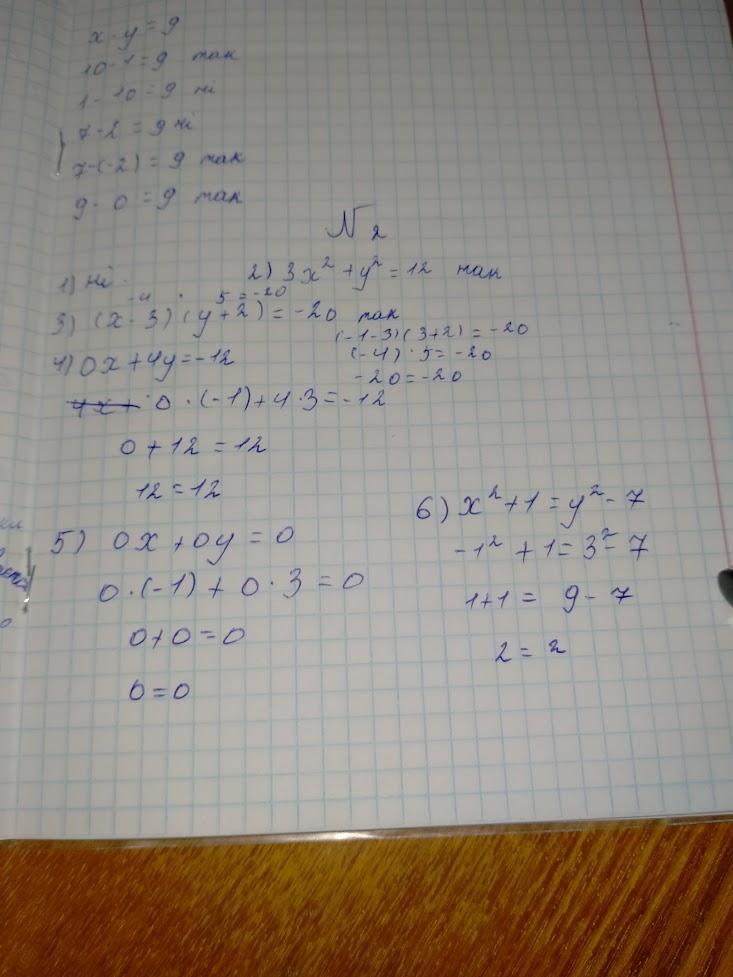 x - y = 9
10 - 1 = 9 так
1 - 10 = 9 ні
7 - 2 = 9 ні
7 - (-2) = 9 так
9 - 0 = 9 так
N 2
1) ні. 2) 3x² + y² = 12 так
-4 · 5 = -20
3) (x - 3) (y + 2) = -20 так
(-1-3)(3+2) = -20
4) 0x + 4y = -12 (-4) · 5 = -20
-20 = -20
0 · (-1) + 4 · 3 = -12
0 + 12 = 12
12 = 12
5) 0x + 0y = 0
0 · (-1) + 0 · 3 = 0
0 + 0 = 0
0 = 0
6) x² + 1 = y² - 7
-1² + 1 = 3² - 7
1 + 1 = 9 - 7
2 = 2